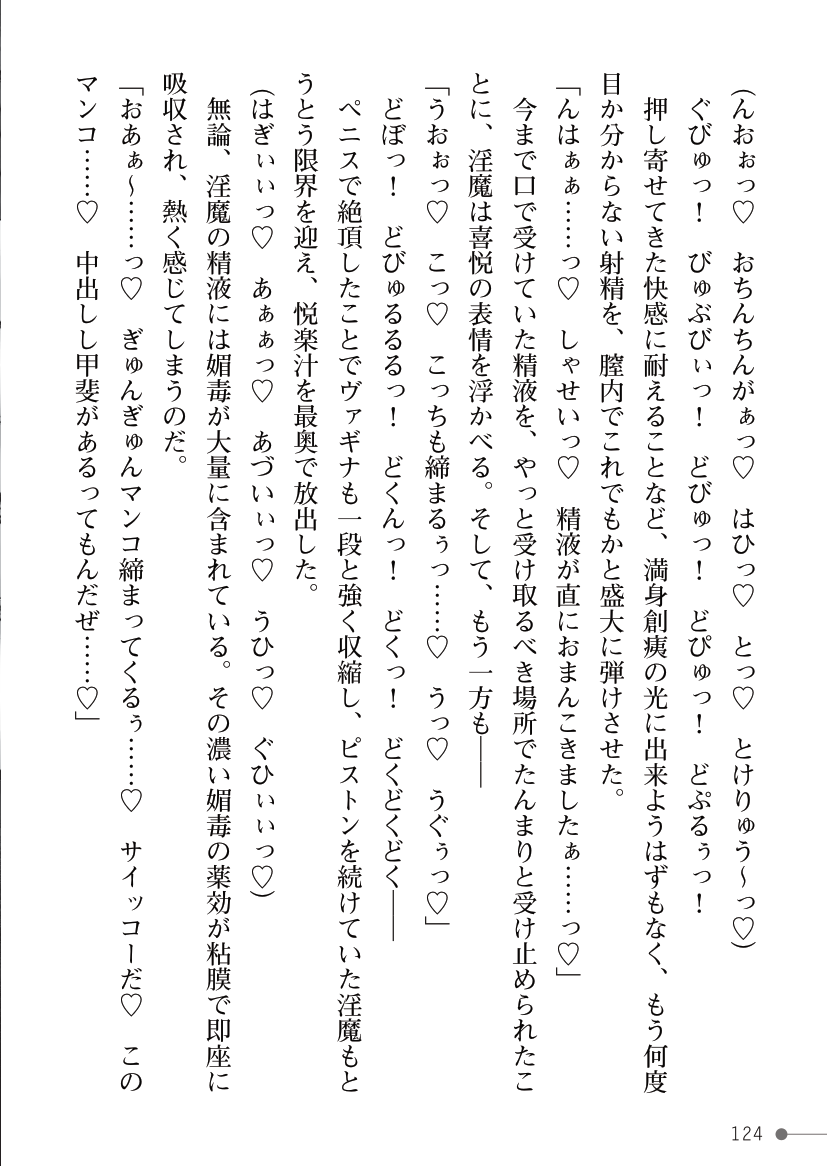 (んおぉっ♡　おちんちんがぁっ♡　はひっ♡　とっ♡　とけりゅう～っ♡)
ぐびゅっ！　びゅぶびぃっ！　どびゅっ！　どぴゅっ！　どぷるぅっ！
押し寄せてきた快感に耐えることなど、満身創痍の光に出来ようはずもなく、もう何度
目か分からない射精を、膣内でこれでもかと盛大に弾けさせた。
「んはぁぁ……っ♡　しゃせいっ♡　精液が直におまんこきましたぁ……っ♡」
今まで口で受けていた精液を、やっと受け取るべき場所でたんまりと受け止められたこ
とに、淫魔は喜悦の表情を浮かべる。そして、もう一方も――
「うおぉっ♡　こっ♡　こっちも締まるぅっ……♡　うっ♡　うぐぅっ♡」
どぼっ！　どびゅるるるっ！　どくんっ！　どくっ！　どくどくどく――
ペニスで絶頂したことでヴァギナも一段と強く収縮し、ピストンを続けていた淫魔もと
うとう限界を迎え、悦楽汁を最奥で放出した。
(はぎぃぃっ♡　あぁぁっ♡　あづいぃっ♡　うひっ♡　ぐひぃぃっ♡)
無論、淫魔の精液には媚毒が大量に含まれている。その濃い媚毒の薬効が粘膜で即座に
吸収され、熱く感じてしまうのだ。
「おあぁ～……っ♡　ぎゅんぎゅんマンコ締まってくるぅ……♡　サイッコーだ♡　この
マンコ……♡　中出しし甲斐があるってもんだぜ……♡」
124